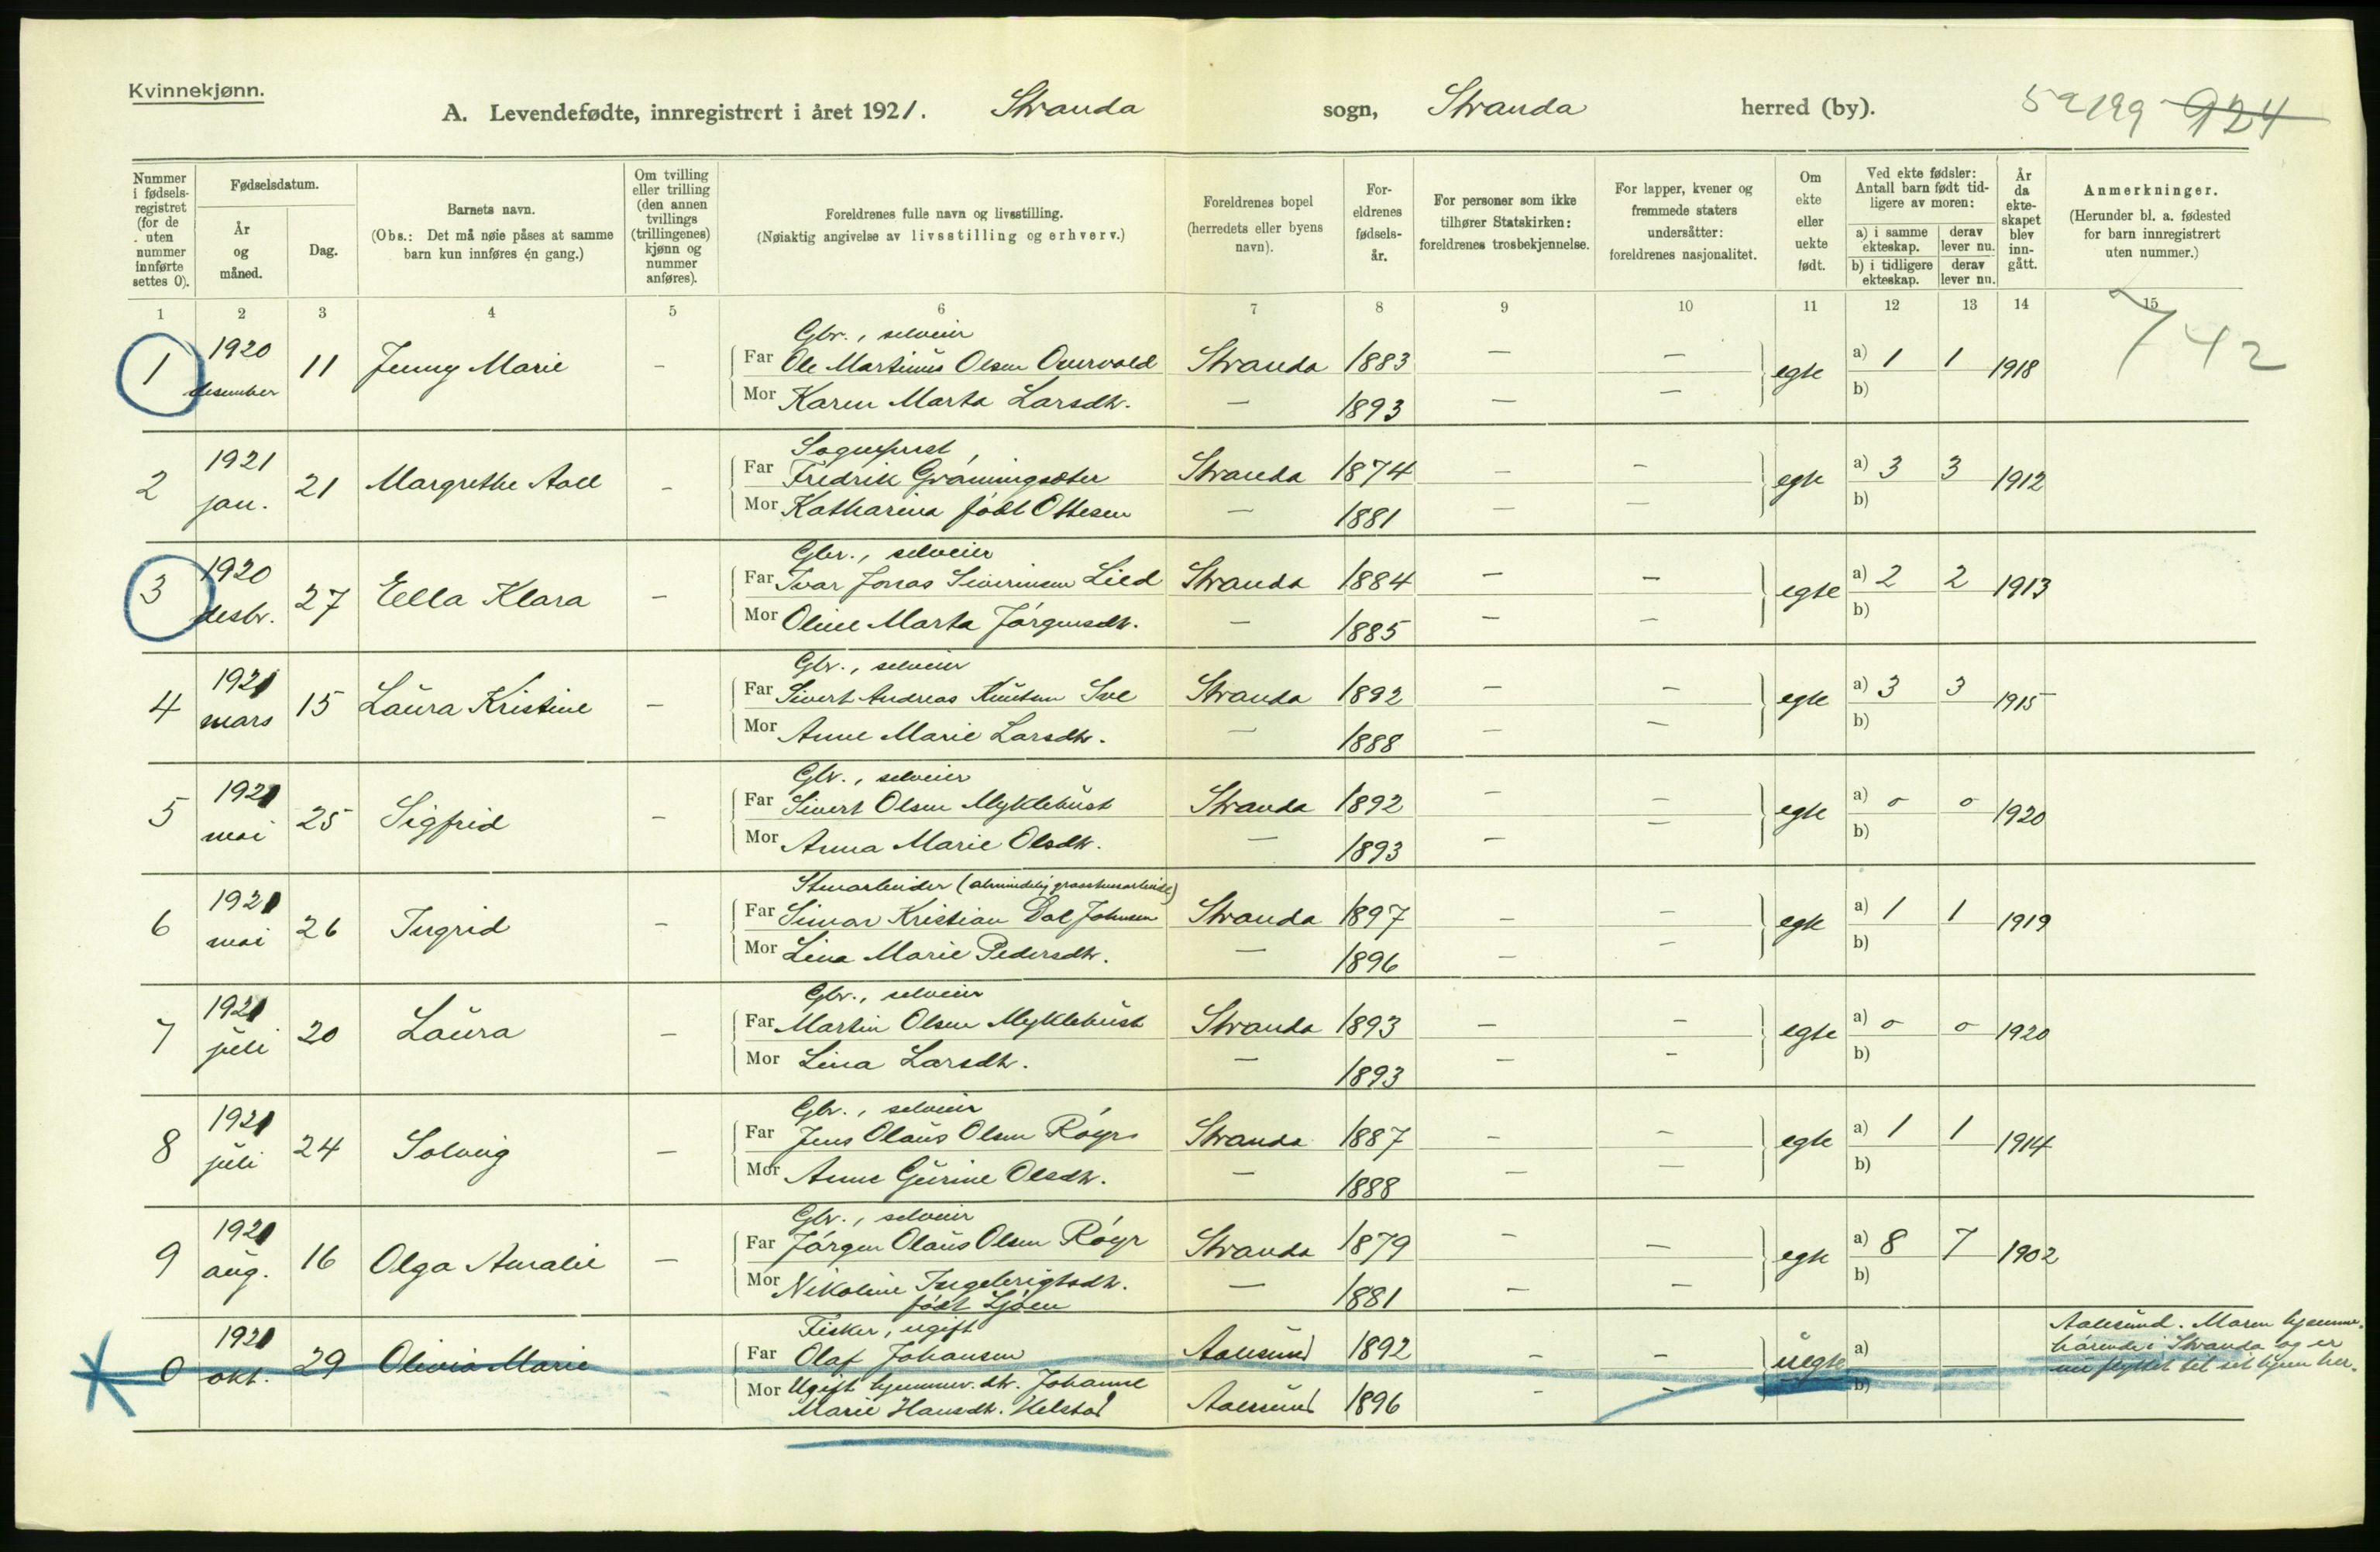 Kvinnekjønn.
A. Levendefødte, innregistrert i året 1921. Stranda sogn, Stranda herred (by). 924
Nummer i fødsels-registret (for de uten nummer innførte settes 0).
Fødselsdatum.
År og måned.
Dag.
Barnets navn.
(Obs.: Det må nøie påses at samme barn kun innføres én gang.)
Om tvilling eller trilling (den annen tvillings (trillingenes) kjønn og nummer anføres).
Foreldrenes fulle navn og livsstilling.
(Nøiaktig angivelse av livsstilling og erhverv.)
Foreldrenes bopel
(herredets eller byens navn).
For-eldrenes fødsels-år.
For personer som ikke tilhører Statskirken: foreldrenes trosbekjennelse.
For lapper, kvener og fremmede staters undersåtter: foreldrenes nasjonalitet.
Om ekte eller uekte født.
Ved ekte fødsler: Antall barn født tid-ligere av moren:
a) i samme ekteskap. derav lever nu.
b) i tidligere ekteskap. derav lever nu.
År da ekte-skapet blev inn-gått.
Anmerkninger.
(Herunder bl. a. fødested for barn innregistrert uten nummer.)
1 2 3 4 5 6 7 8 9 10 11 12 13 14 15
742
Gbr., selveier
1 1920 desember 11 Jenny Marie — Far Ole Martinus Olsen Overvold Stranda 1883 — — egte a) 1 1 1918
Mor Karen Marta Larsdtr. — 1893 — — b)
Sogneprest,
2 1921 jan. 21 Margrethe Aall — Far Fredrik Gröningsæter Stranda 1874 — — egte a) 3 3 1912
Mor Katharina født Ottesen — 1881 — — b)
Gbr., selveier
3 1920 desbr. 27 Ella Klara — Far Ivar Jonas Siverinsen Lied Stranda 1884 — — egte a) 2 2 1913
Mor Oline Marta Jörgensdtr. — 1885 — — b)
Gbr., selveier
4 1921 mars 15 Laura Kristine — Far Sivert Andreas Knutsen Sve Stranda 1892 — — egte a) 3 3 1915
Mor Anne Marie Larsdtr. — 1888 — — b)
Gbr., selveier
5 1921 mai 25 Sigfrid — Far Sivert Olsen Myklebust Stranda 1892 — — egte a) 0 0 1920
Mor Anna Marie Olsdtr. — 1893 — — b)
Stenarbeider (
6 1921 mai 26 Ingrid — Far Simar Kristian Dal Johnsen Stranda 1897 — — egte a) 1 1 1919
Mor Lina Marie Pedersdtr. — 1896 — — b)
Gbr., selveier
7 1921 juli 20 Laura — Far Martin Olsen Myklebust Stranda 1893 — — egte a) 0 0 1920
Mor Lina Larsdtr. — 1893 — — b)
Gbr., selveier
8 1921 juli 24 Solveig — Far Jens Olaus Olsen Röyr Stranda 1887 — — egte a) 1 1 1914
Mor Anne Gurine Olsdtr. — 1888 — — b)
Gbr., selveier
9 1921 aug. 16 Olga Amalie — Far Jörgen Olaus Olsen Röyr Stranda 1879 — — egte a) 8 7 1902
Mor Nikoline Ingebrigtsdtr. — 1881 — — b)
født Ljøen
Fisker, ugift
0 1921 okt. 29 Olivia Marie - Far Olaf Johansen Aalesund 1892 — — uegte a)
Mor Ugift hjemmev. dtr. Johanne
Marie Hansdtr. Helstad Aalesund 1896 - - b)
Aalesund. Moren hjemme-
hörende i Stranda og er
nu flyttet til sit hjem her.